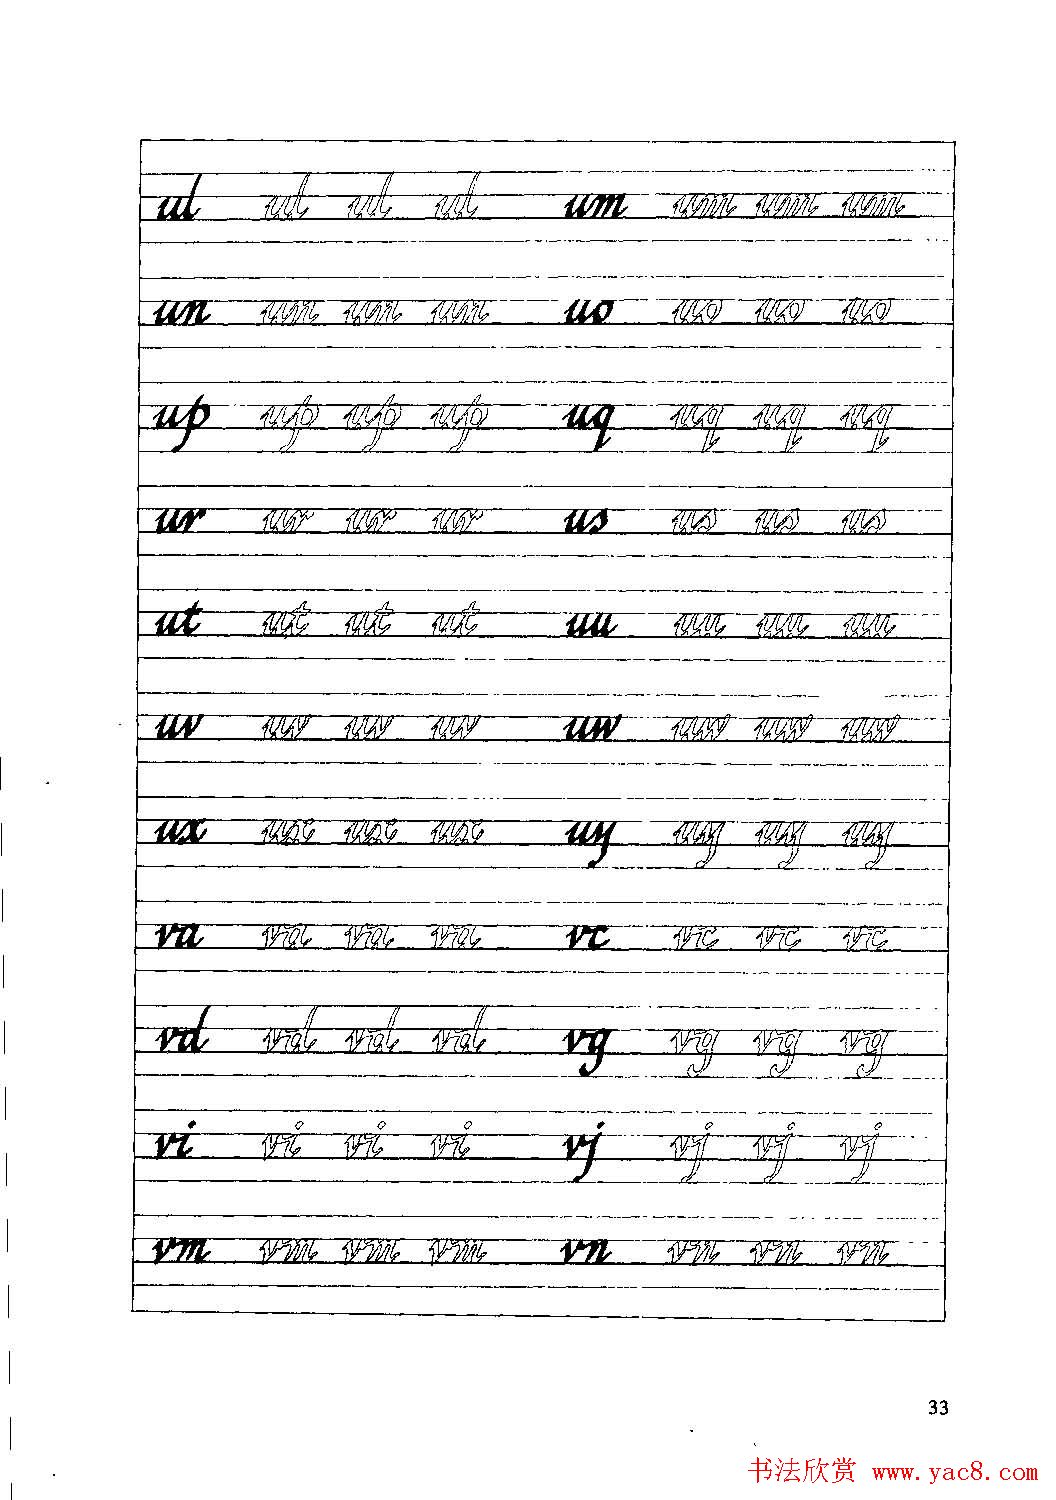 ul ul ul ul um um um um
un un un un uo uo uo uo
up up up up uq uq uq uq
ur ur ur ur us us us us
ut ut ut ut uu uu uu uu
uv uv uv uv uw uw uw uw
ux ux ux ux uy uy uy uy
va va va va vc vc vc vc
vd vd vd vd vg vg vg vg
vi vi vi vi vj vj vj vj
vm vm vm vm vn vn vn vn
33
书法欣赏 www.yac8.com